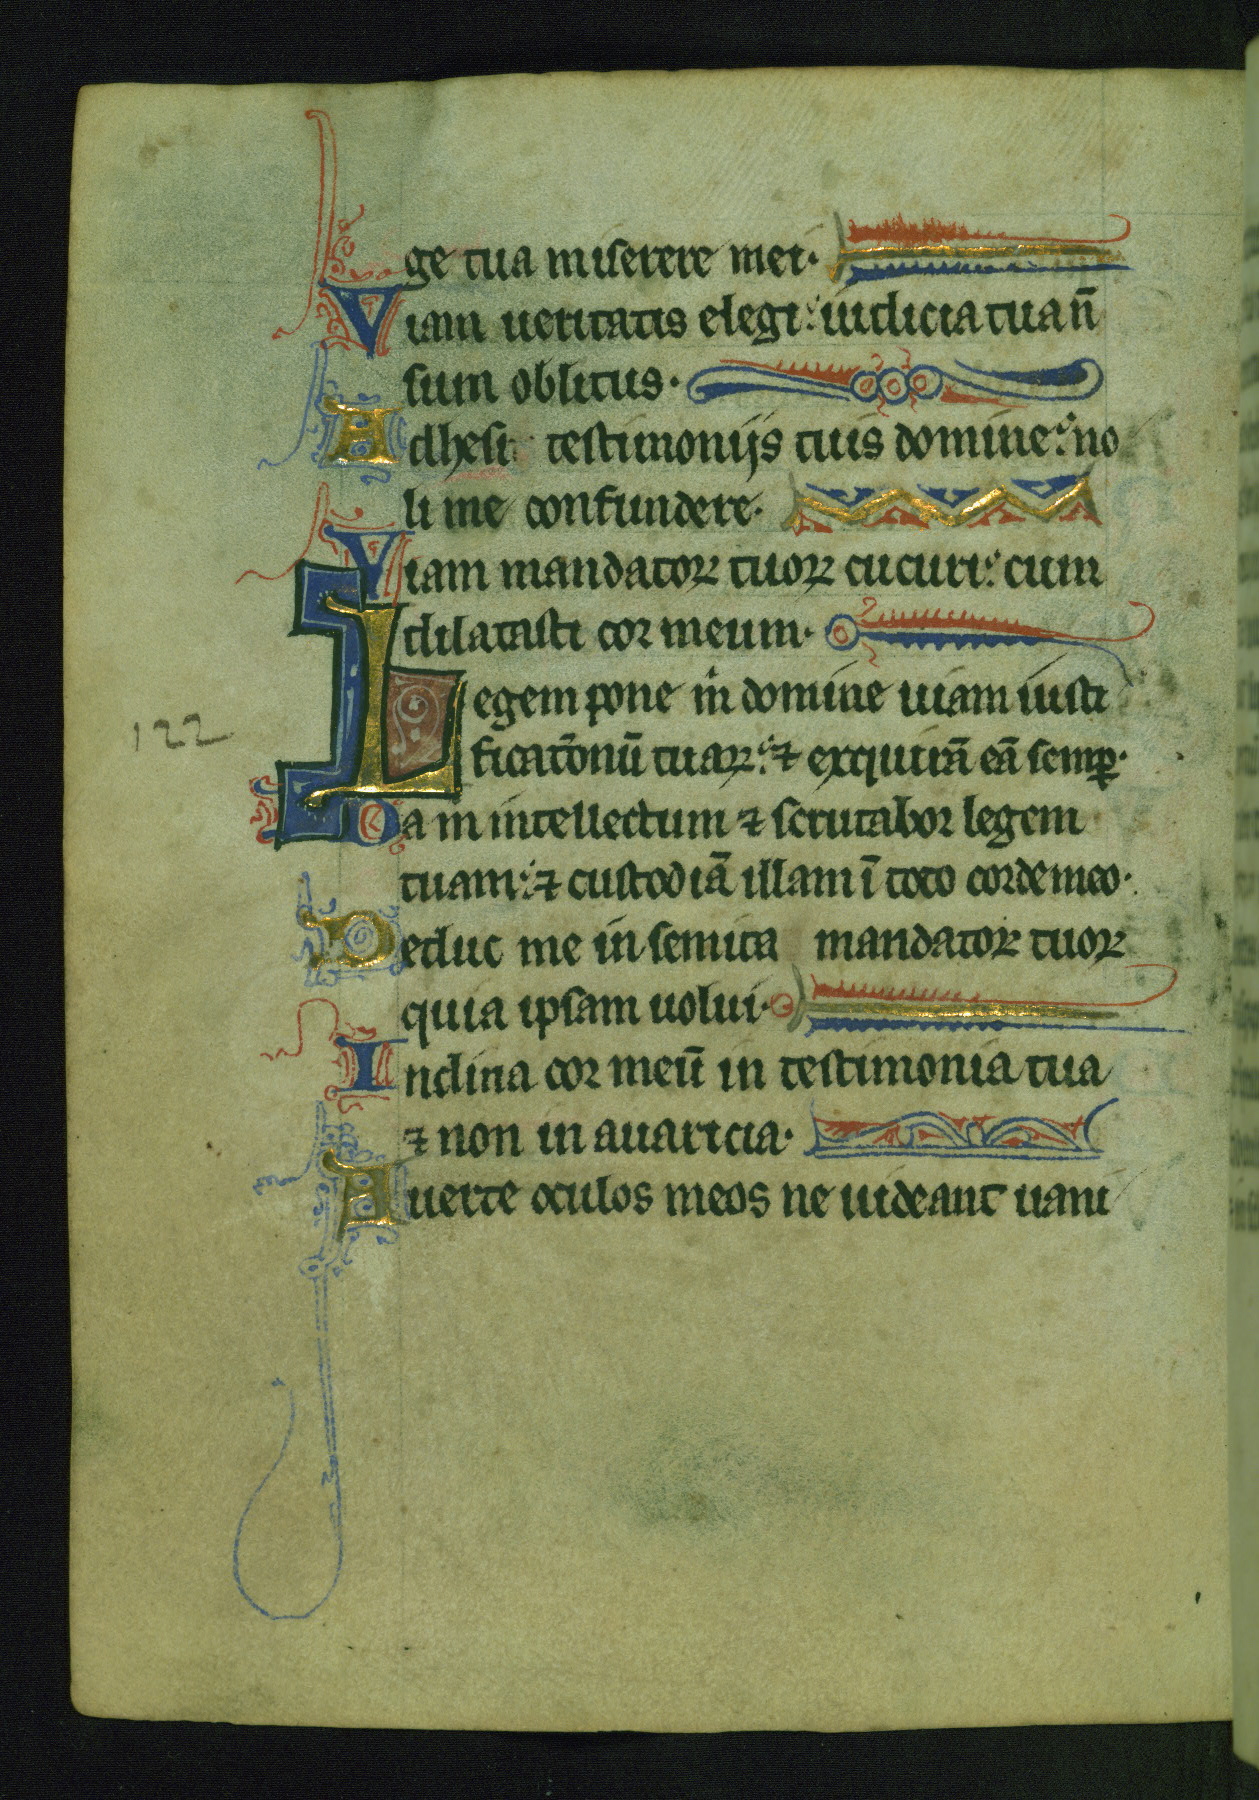 ge tua miserere mei·
Viam ueritatis elegi: iudicia tua n̄
sum oblitus·
Adhesi testimonijs tuis domine: no
li me confundere·
Viam mandatoꝝ tuoꝝ cucurri: cum
dilatasti cor meum·
Legem pone m̓ domine uiam iusti
ficatōnū tuaꝝ: ⁊ exquirā eā semꝑ·
122
Da m̓ intellectum ⁊ scrutabor legem
tuam: ⁊ custodiā illam ī toto corde meo·
Deduc me in semita mandatoꝝ tuoꝝ
quia ipsam uolui·
Inclina cor meū in testimonia tua
⁊ non in auaricia·
Auerte oculos meos ne uideant uani